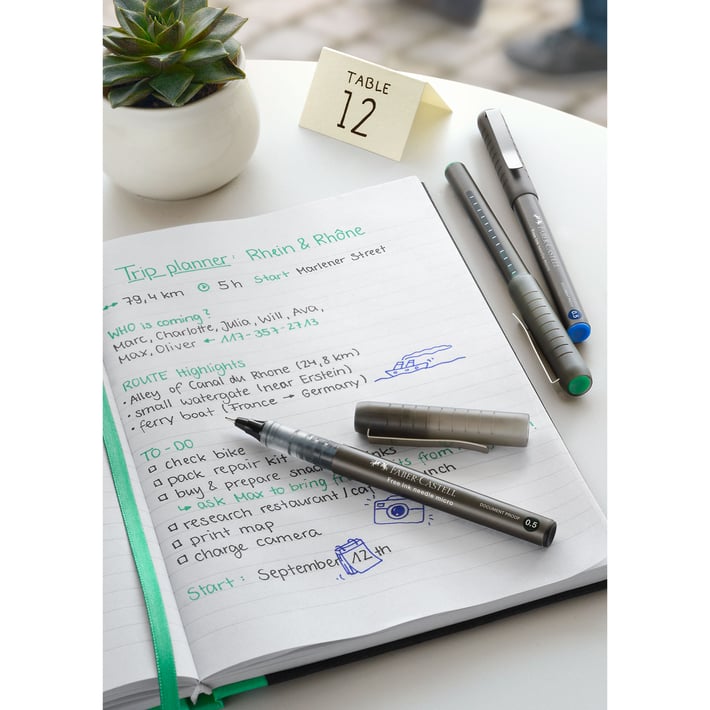 TABLE
12
Trip planner: Rhein & Rhône
79,4 km 5h Start Marlener Street
WHO is coming?
Marc, Charlotte, Julia, Will, Ava,
Max, Oliver ← 117-357-2713
ROUTE Highlights
• Alley of Canal du Rhone (24,8 km)
• small watergate (near Erstein)
• ferry boat (France → Germany)
TO-DO
□ check bike
□ pack repair kit
□ buy & prepare
↳ ask Max to bring from
□ research restaurant /
□ print map
□ charge camera
Start: September 12th
FABER-CASTELL
Free ink needle micro
DOCUMENT PROOF
0.5
FABER-CASTELL
0.5